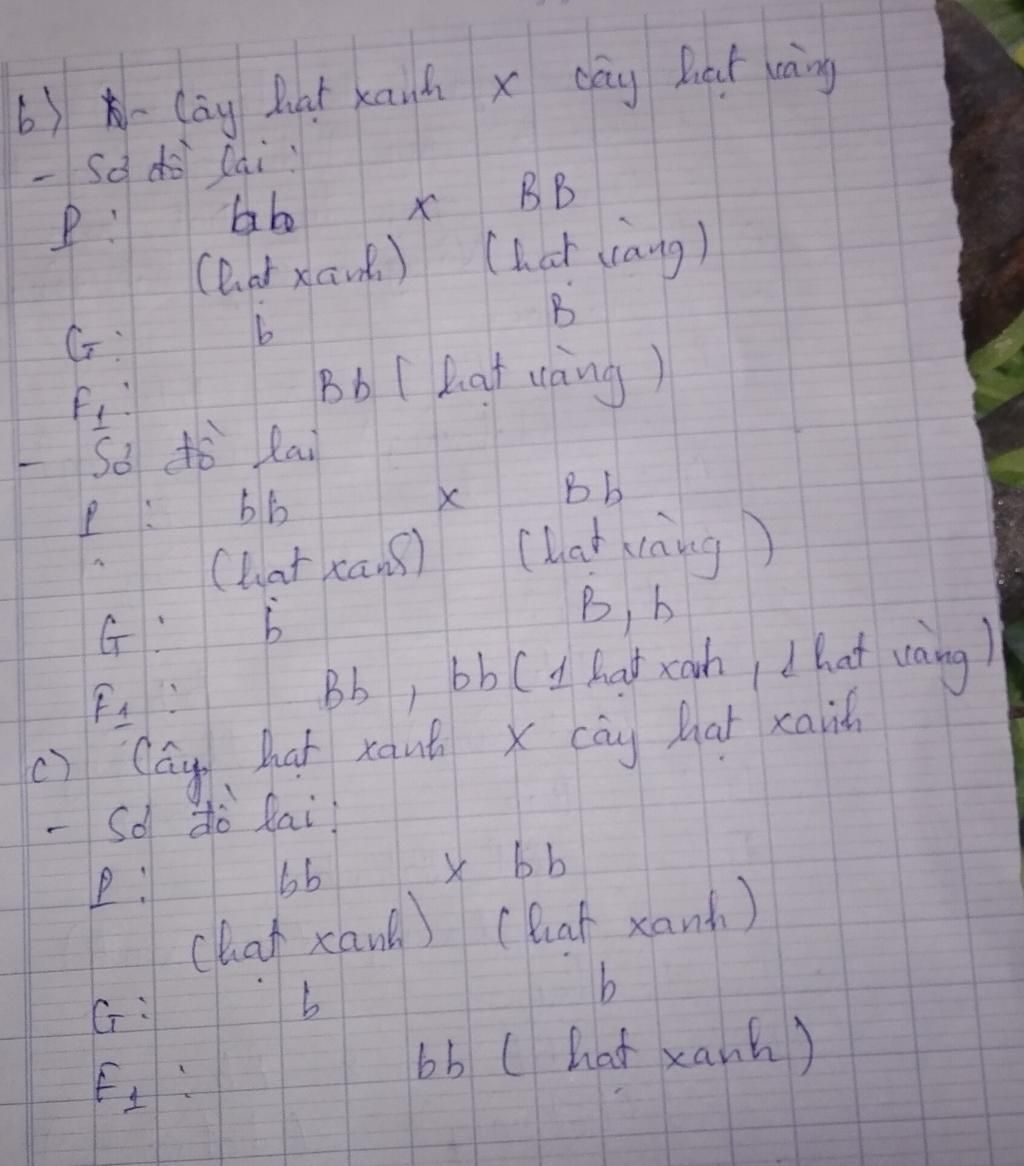 b) - Cây hạt xanh x cây hạt vàng
- Sơ đồ lai:
P: bb x BB
(hạt xanh) (hạt vàng)
G: b B
F1: Bb (hạt vàng)
- Sơ đồ lai
P: bb x Bb
(hạt xanh) (hạt vàng)
G: b B, b
F1: Bb, bb (1 hạt xah, 1 hat vàng)
c) Cây hạt xanh x cây hạt xanh
- Sơ đồ lai:
P: bb x bb
(hạt xanh) (hạt xanh)
G: b b
F1: bb (hạt xanh)